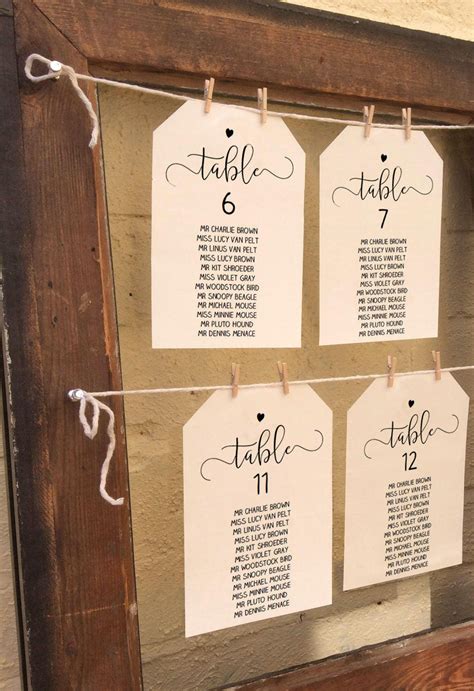 table
6
MR CHARLIE BROWN
MISS LUCY VAN PELT
MR LINUS VAN PELT
MISS LUCY BROWN
MR KIT SHROEDER
MISS VIOLET GRAY
MR WOODSTOCK BIRD
MR SNOOPY BEAGLE
MR MICHAEL MOUSE
MISS MINNIE MOUSE
MR PLUTO HOUND
MR DENNIS MENACE
table
7
MR CHARLIE BROWN
MISS LUCY VAN PELT
MR LINUS VAN PELT
MISS LUCY BROWN
MR KIT SHROEDER
MISS VIOLET GRAY
MR WOODSTOCK BIRD
MR SNOOPY BEAGLE
MR MICHAEL MOUSE
MISS MINNIE MOUSE
MR PLUTO HOUND
MR DENNIS MENACE
table
11
MR CHARLIE BROWN
MISS LUCY VAN PELT
MR LINUS VAN PELT
MISS LUCY BROWN
MR KIT SHROEDER
MISS VIOLET GRAY
MR WOODSTOCK BIRD
MR SNOOPY BEAGLE
MR MICHAEL MOUSE
MISS MINNIE MOUSE
MR PLUTO HOUND
MR DENNIS MENACE
table
12
MR CHARLIE BROWN
MISS LUCY VAN PELT
MR LINUS VAN PELT
MISS LUCY BROWN
MR KIT SHROEDER
MISS VIOLET GRAY
MR WOODSTOCK BIRD
MR SNOOPY BEAGLE
MR MICHAEL MOUSE
MISS MINNIE MOUSE
MR PLUTO HOUND
MR DENNIS MENACE